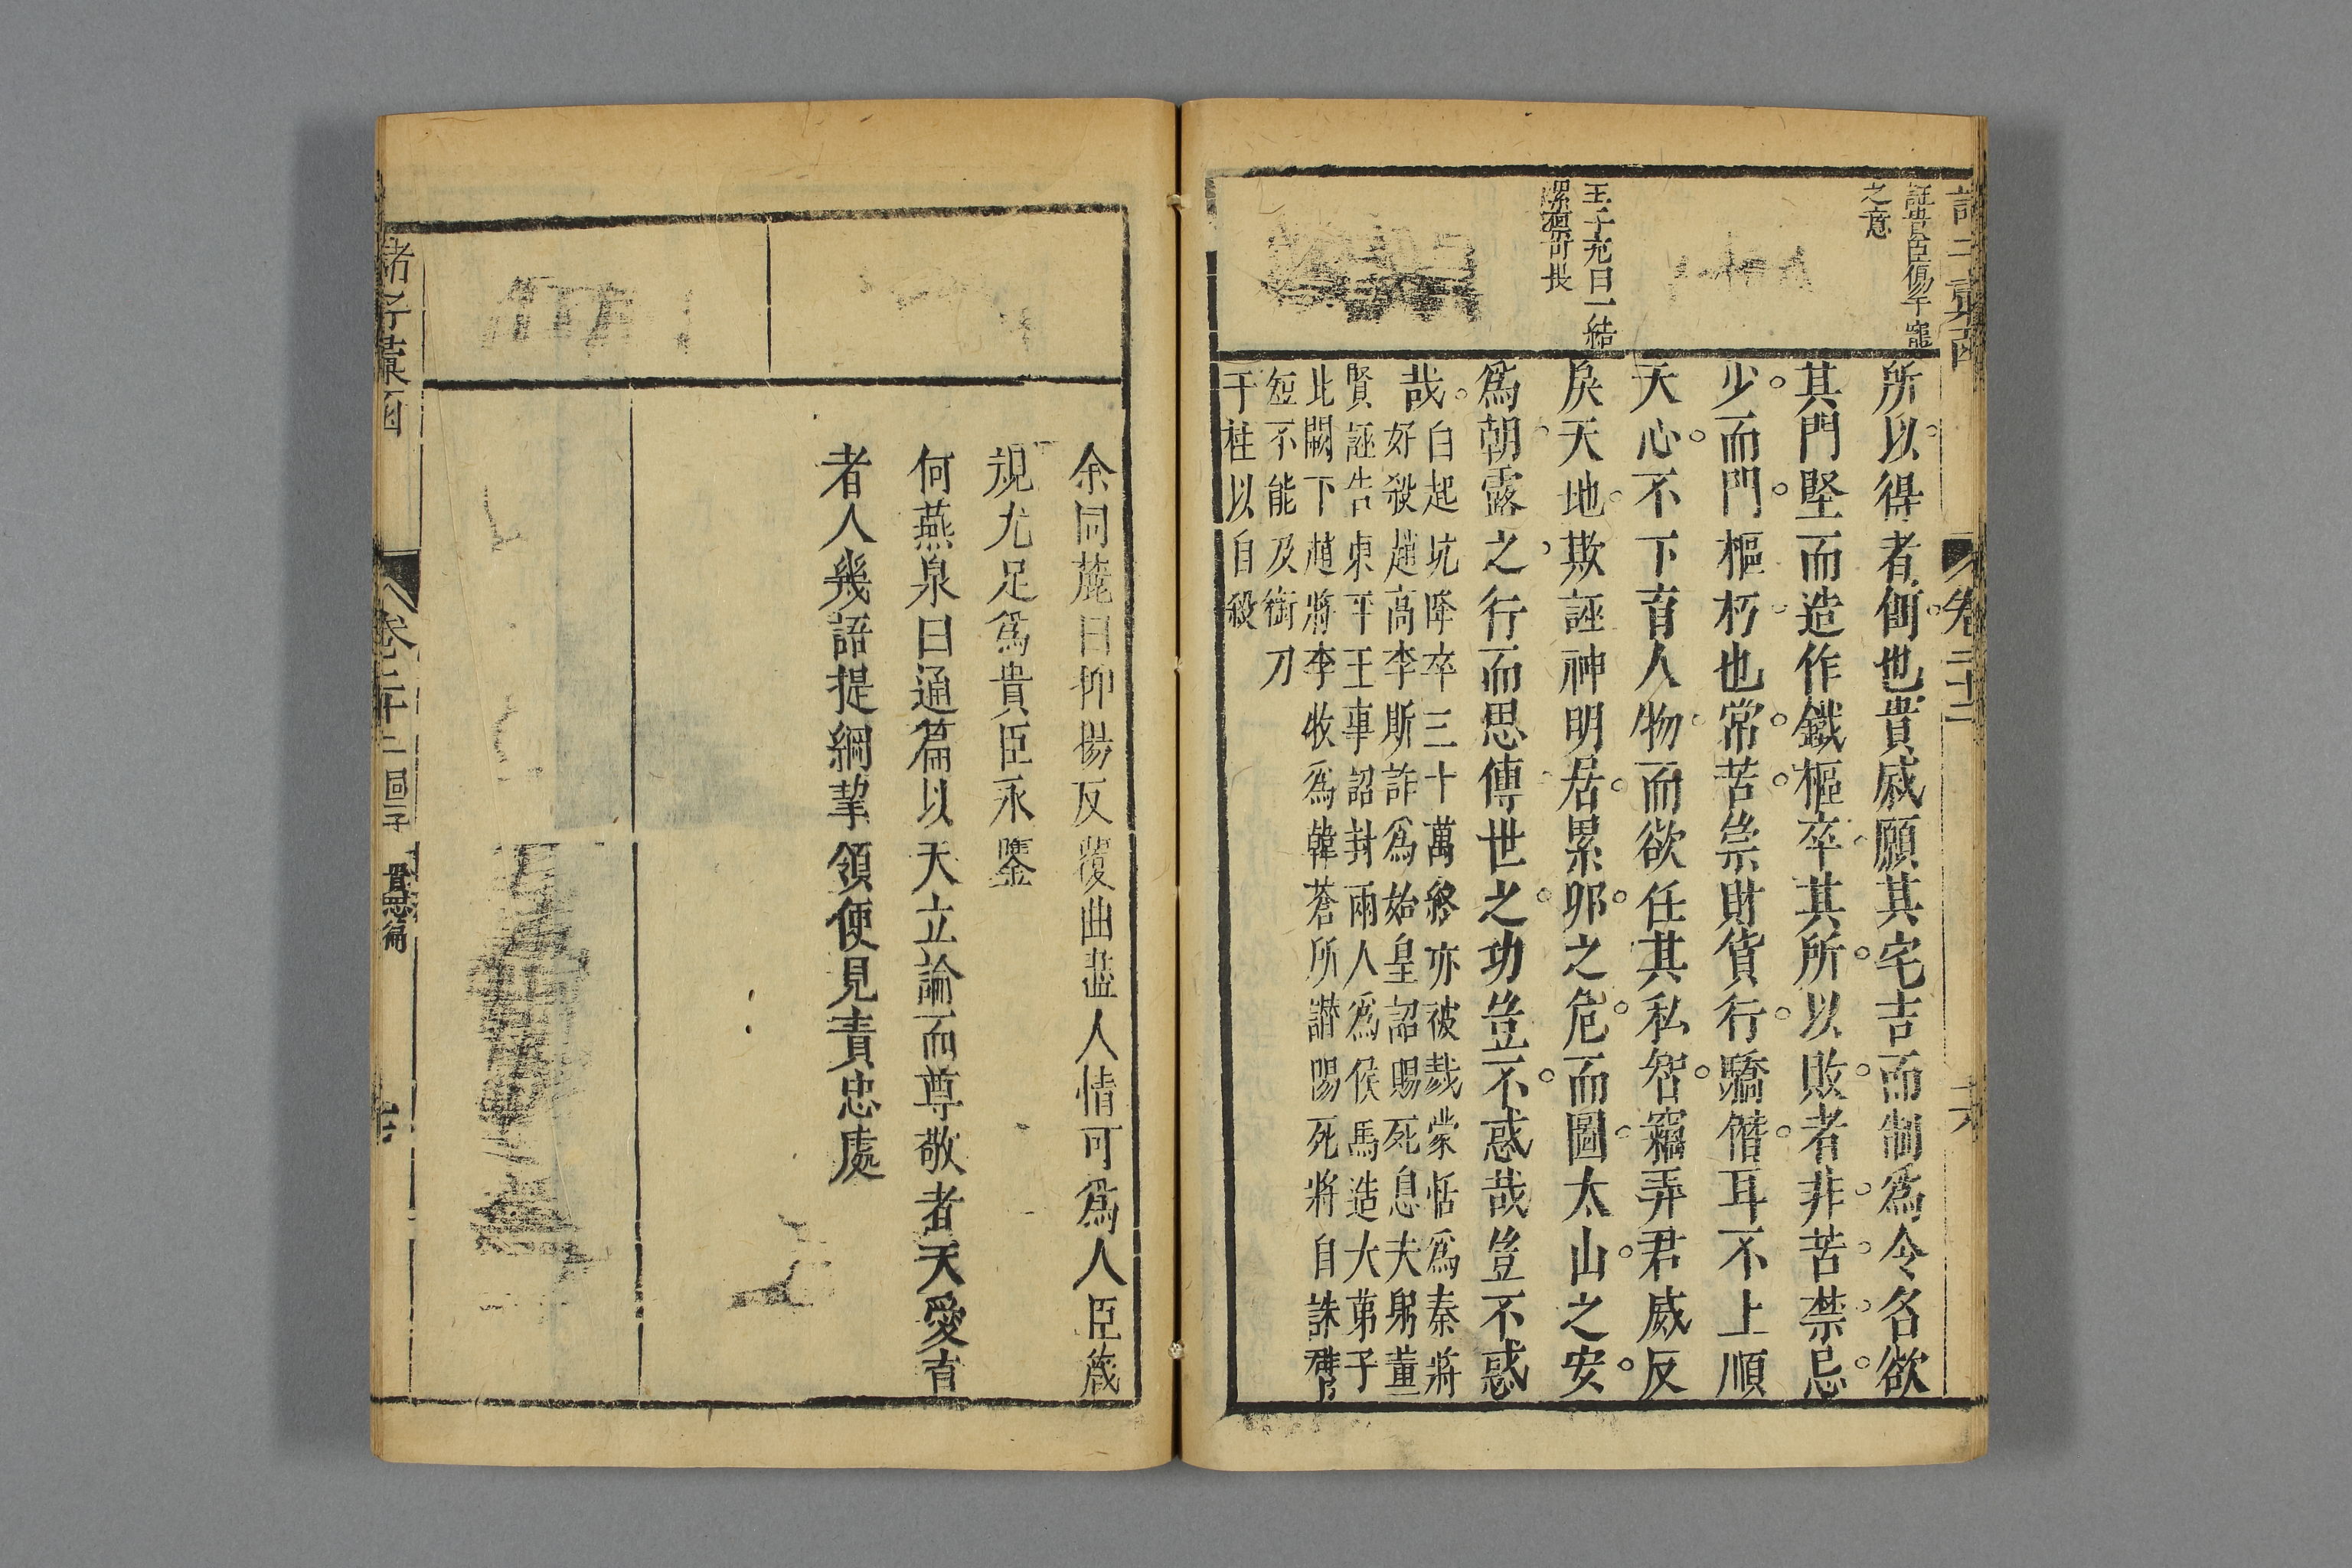 卷二十二
十六
証貴臣傷于寵
之意
王子充曰一結
凜凜可長
所以得者創也貴戚願其宅吉而制爲令名欲
其門堅而造作鐵樞卒其所以敗者非苦禁忌
少而門樞朽也常苦祟財貨行驕僭耳不上順
天心不下育人物而欲任其私智竊弄君威反
戾天地欺誣神明居累卵之危而圖太山之安
爲朝露之行而思傳世之功豈不惑哉豈不惑
哉
白起坑降卒三十萬終亦被裁蒙恬爲秦將
好殺趙高李斯詐爲始皇詔賜死息夫躬董
賢誣告東平王事詔封兩人爲侯馬造大第子
北闕下趙將李牧爲韓蒼所譖賜死將自誅臂
短不能及銜刀
于柱以自殺
余同麓曰抑揚反覆曲盡人情可爲人臣箴
規尤足爲貴臣永鑒
何燕泉曰通篇以天立論而尊敬者天愛育
者人幾語提綱挈領便見責忠處
諸子彙函
卷二十二
回子
貴忠篇